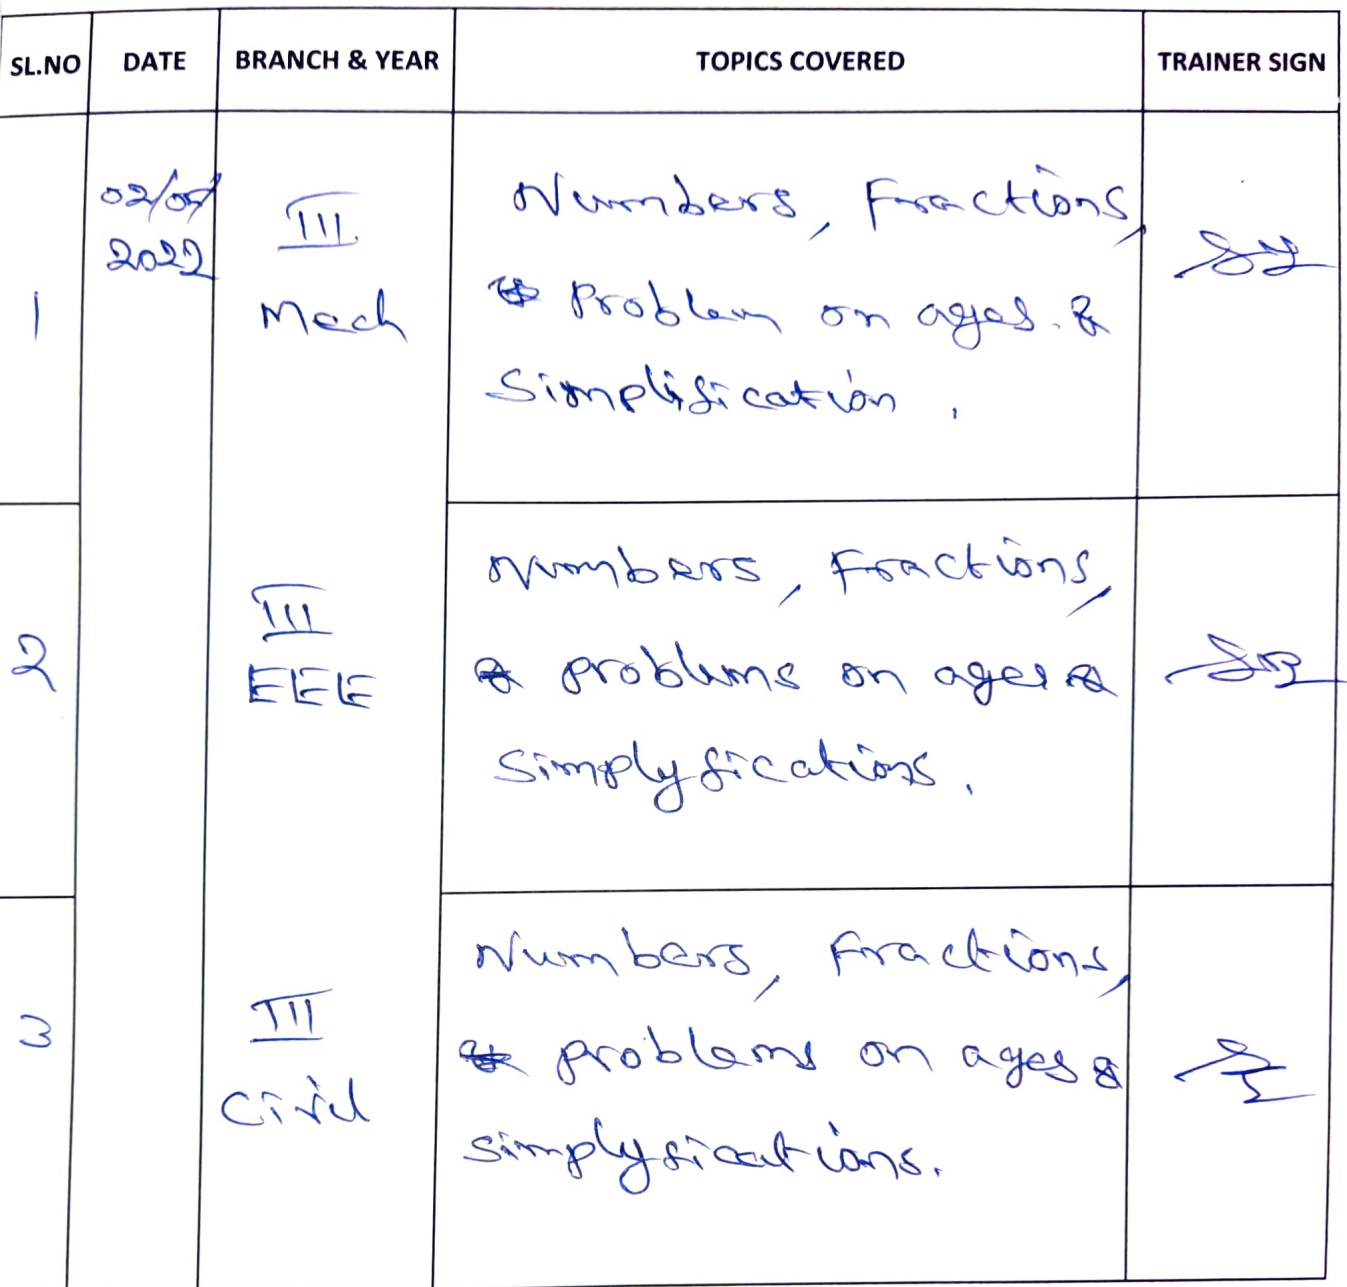 SL.NO DATE BRANCH & YEAR TOPICS COVERED TRAINER SIGN
1
2022
III
Mech
Numbers, Fractions,
Problem on ages. &
Simplification.
2
III
EEE
Numbers, Fractions,
problems on ages &
Simplyfications.
3
III
Civil
Numbers, Fractions,
problems on ages &
simplyfications.